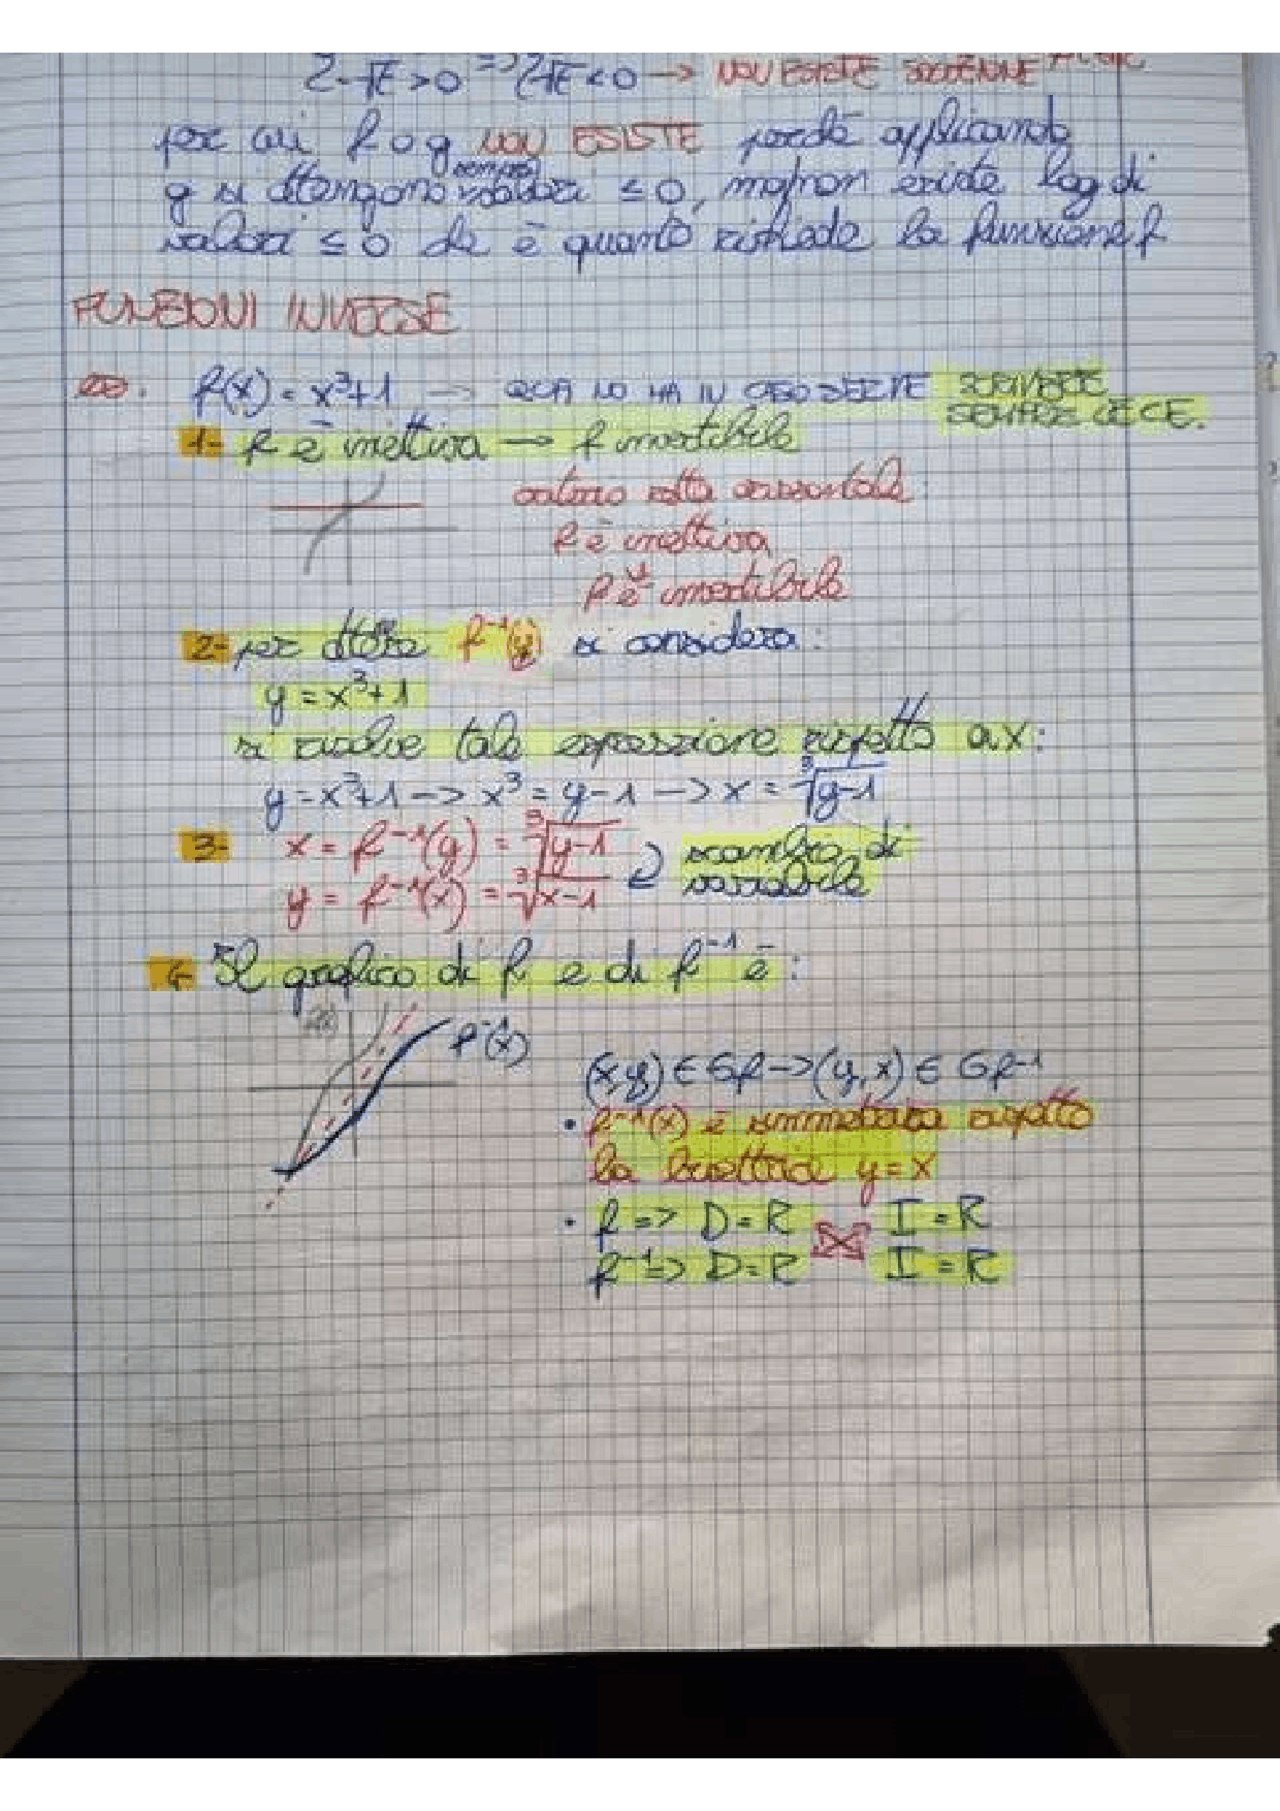 2-√E > 0 => 2-√E < 0 → NON ESISTE
per cui f o g NON ESISTE perchè applicando
g si ottengono sempre valori ≤ 0, ma non esiste log di
valori ≤ 0 che è quanto richiede la funzione f
FUNZIONI INVERSE
es. f(x) = x³+1 → QUA NO MA IN SCRIVERE
SEMPRE LE CE.
1- f è iniettiva → f invertibile
criterio retta orizzontale:
f è iniettiva
f è invertibile
2- per ottere f⁻¹(y) si considera:
y = x³+1
si risolve tale espressione rispetto a x:
y = x³+1 -> x³ = y-1 -> x = ³√y-1
3- x = f⁻¹(y) = ³√y-1 scambio di
y = f⁻¹(x) = ³√x-1 variabile
4- Il grafico di f e di f⁻¹ è:
f(x)
f⁻¹(x)
(x,y) ∈ Gf -> (y,x) ∈ Gf⁻¹
• f⁻¹(x) è simmetrica rispetto
la bisettrice y = x
• f => D = R I = R
f⁻¹ => D = R I = R